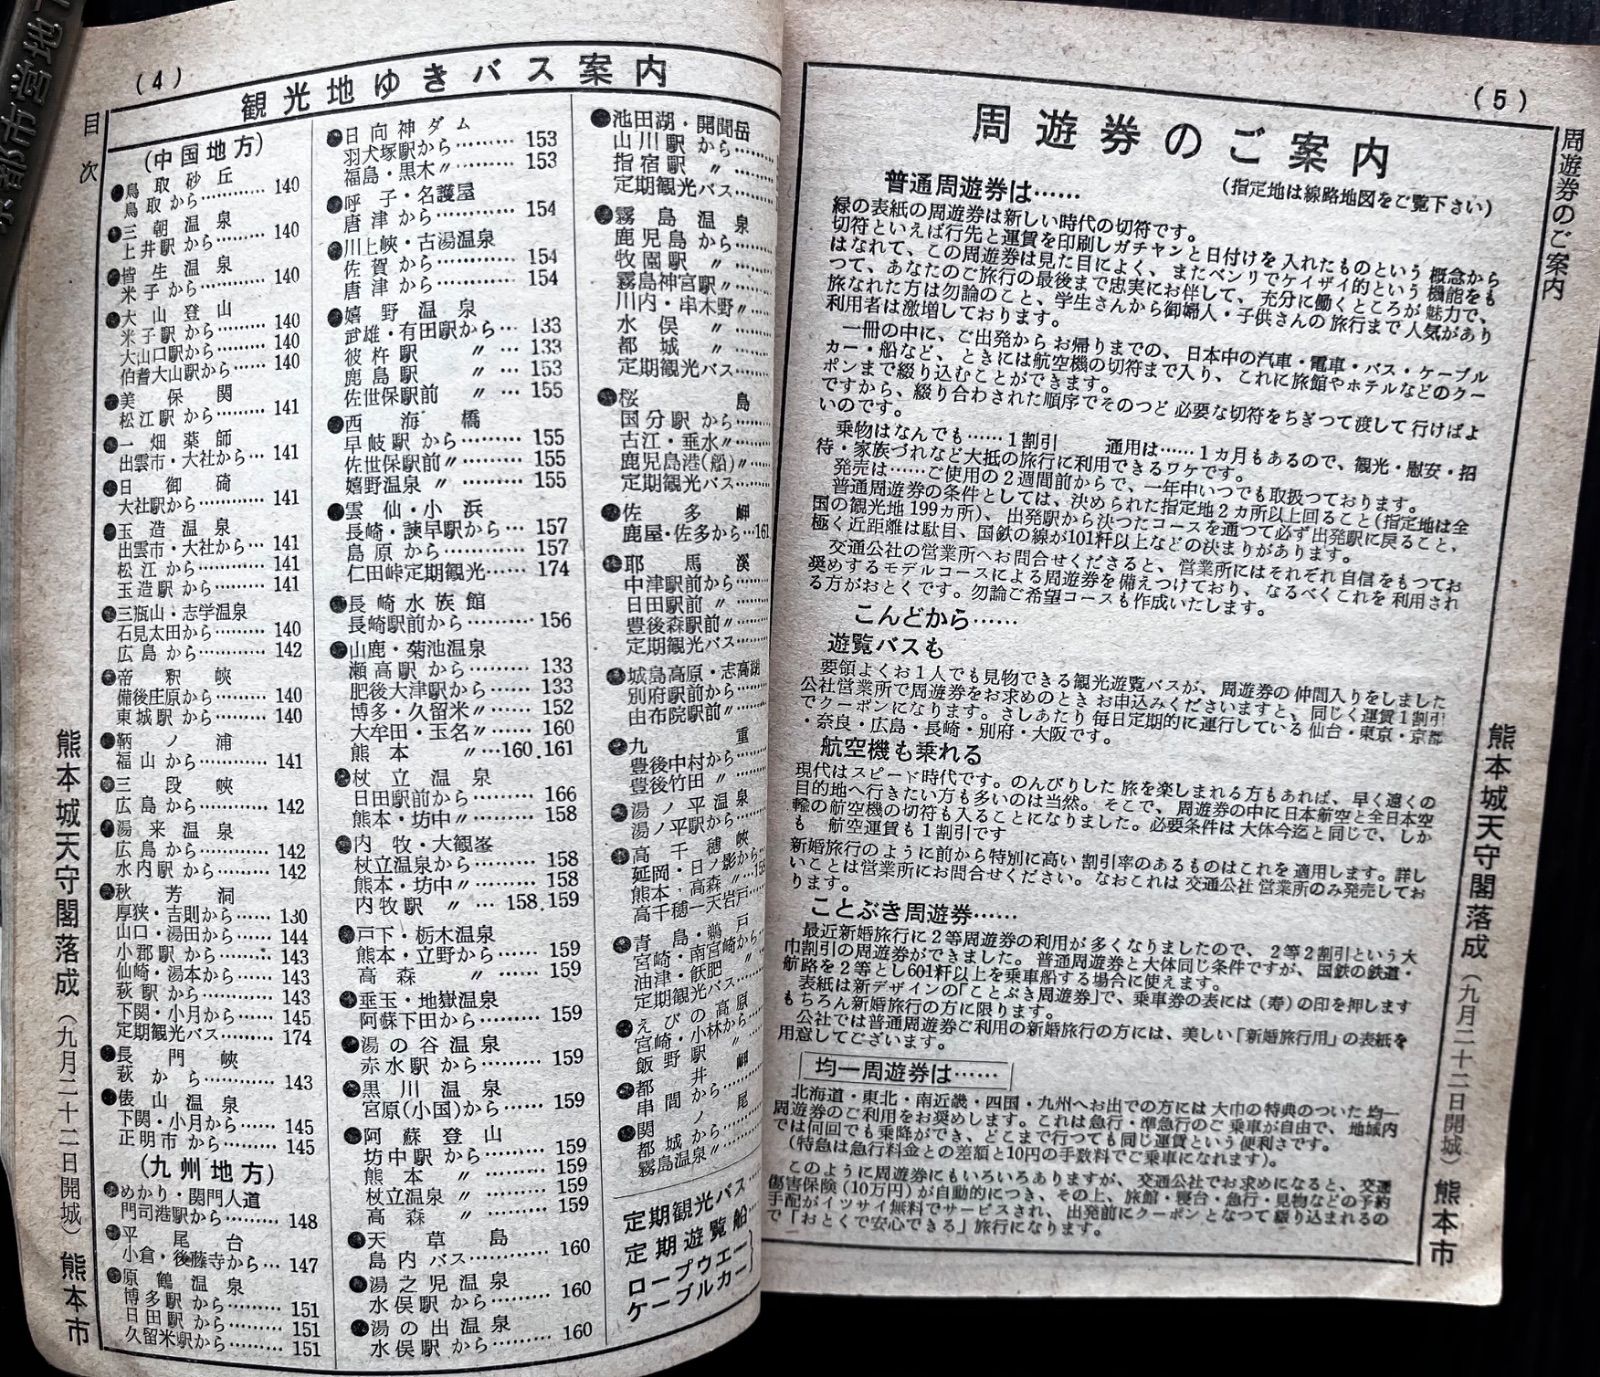 (4)
観光地ゆきバス案内
目次
(中国地方)
●鳥取砂丘
鳥取から………140
●三朝温泉
上井駅から………140
●皆生温泉
米子から………140
●大山登山
米子駅から………140
大山口駅から………140
伯耆大山駅から……140
●美保関
松江駅から………141
●一畑薬師
出雲市・大社から…141
●日御碕
大社駅から………141
●玉造温泉
出雲市・大社から…141
松江から………141
玉造駅から………141
●三瓶山・志学温泉
石見太田から………140
広島から………142
●帝釈峡
備後庄原から………140
東城駅から………140
●鞆ノ浦
福山から………141
●三段峡
広島から………142
●湯来温泉
広島から………142
水内駅から………142
●秋芳洞
厚狭・吉則から……130
山口・湯田から……144
小郡駅から………143
仙崎・湯本から……143
萩駅から………143
下関・小月から……145
定期観光バス………174
●長門峡
萩から………143
●俵山温泉
下関・小月から……145
正明市から………145
(九州地方)
●めかり・関門人道
門司港駅から………148
●平尾台
小倉・後藤寺から…147
●原鶴温泉
博多駅から………151
日田駅から………151
久留米駅から………151
●日向神ダム
羽犬塚駅から………153
福島・黒木〃………153
●呼子・名護屋
唐津から………154
●川上峡・古湯温泉
佐賀から………154
唐津から………154
●嬉野温泉
武雄・有田駅から…133
彼杵駅〃…133
鹿島駅〃…153
佐世保駅前〃…155
●西海橋
早岐駅から………155
佐世保駅前〃………155
嬉野温泉〃………155
●雲仙・小浜
長崎・諫早駅から…157
島原から………157
仁田峠定期観光……174
●長崎水族館
長崎駅前から………156
●山鹿・菊池温泉
瀬高駅から………133
肥後大津駅から……133
博多・久留米〃……152
大牟田・玉名〃……160
熊本〃…160.161
●杖立温泉
日田駅前から………166
熊本・坊中〃………158
●内牧・大観峯
杖立温泉から………158
熊本・坊中〃………158
内牧駅〃…158.159
●戸下・栃木温泉
熊本・立野から……159
高森〃……159
●垂玉・地獄温泉
阿蘇下田から………159
●湯の谷温泉
赤水駅から………159
●黒川温泉
宮原(小国)から……159
●阿蘇登山
坊中駅から………159
熊本〃………159
杖立温泉〃………159
高森〃………159
●天草島
島内バス………160
●湯之児温泉
水俣駅から………160
●湯の出温泉
水俣駅から………160
●池田湖・開聞岳
山川駅から………
指宿駅〃………
定期観光バス……
●霧島温泉
鹿児島から………
牧園駅〃………
霧島神宮駅〃……
川内・串木野〃…
水俣〃………
都城〃………
定期観光バス……
●桜島
国分駅から………
古江・垂水〃……
鹿児島港(船)〃…
定期観光バス……
●佐多岬
鹿屋・佐多から…161
●耶馬溪
中津駅前から……
日田駅前〃………
豊後森駅前〃……
定期観光バス……
●城島高原・志高湖
別府駅前から……
由布院駅前〃……
●九重
豊後中村から……
豊後竹田〃………
●湯ノ平温泉
湯ノ平駅から……
●高千穂峡
延岡・日ノ影から…
熊本・高森〃……
高千穂―天岩戸…
●青島・鵜戸
宮崎・南宮崎から…
油津・飫肥〃……
定期観光バス……
●えびの高原
宮崎・小林から…
飯野駅〃………
●都井岬
串間から………
●関ノ尾
都城から………
霧島温泉〃………
定期観光バス…
定期遊覧船…
ロープウエー
ケーブルカー
熊本城天守閣落成(九月二十二日開城)熊本市
(5)
周遊券のご案内
周遊券のご案内
(指定地は線路地図をご覧下さい)
普通周遊券は……
緑の表紙の周遊券は新しい時代の切符です。
切符といえば行先と運賃を印刷しガチャンと日付けを入れたものという概念から
はなれて、この周遊券は見た目によく、またベンリでケイザイ的という機能をも
つて、あなたのご旅行の最後まで忠実にお伴して、充分に働くところが魅力で、
旅なれた方は勿論のこと、学生さんから御婦人・子供さんの旅行まで人気があり
利用者は激増しております。
一冊の中に、ご出発からお帰りまでの、日本中の汽車・電車・バス・ケーブル
カー・船など、ときには航空機の切符まで入り、これに旅館やホテルなどのクー
ポンまで綴り込むことができます。
ですから、綴り合わされた順序でそのつど必要な切符をちぎつて渡して行けばよ
いのです。
乗物はなんでも……1割引　通用は……1カ月もあるので、観光・慰安・招
待・家族づれなど大抵の旅行に利用できるワケです。
発売は……ご使用の2週間前からで、一年中いつでも取扱つております。
普通周遊券の条件としては、決められた指定地2カ所以上回ること(指定地は全
国の観光地199カ所)、出発駅から決つたコースを通つて必ず出発駅に戻ること、
極く近距離は駄目、国鉄の線が101粁以上などの決まりがあります。
交通公社の営業所へお問合せくださると、営業所にはそれぞれ自信をもつてお
奨めするモデルコースによる周遊券を備えつけており、なるべくこれを利用され
る方がおとくです。勿論ご希望コースも作成いたします。
こんどから……
遊覧バスも
要領よくお1人でも見物できる観光遊覧バスが、周遊券の仲間入りをしました
公社営業所で周遊券をお求めのときお申込みくださいますと、同じく運賃1割引
でクーポンになります。さしあたり毎日定期的に運行している仙台・東京・京都
・奈良・広島・長崎・別府・大阪です。
航空機も乗れる
現代はスピード時代です。のんびりした旅を楽しまれる方もあれば、早く遠くの
目的地へ行きたい方も多いのは当然。そこで、周遊券の中に日本航空と全日本空
輸の航空機の切符も入ることになりました。必要条件は大体今迄と同じで、しか
も　航空運賃も1割引です
新婚旅行のように前から特別に高い割引率のあるものはこれを適用します。詳し
いことは営業所にお問合せください。なおこれは交通公社営業所のみ発売してお
ります。
ことぶき周遊券……
最近新婚旅行に2等周遊券の利用が多くなりましたので、2等2割引という大
巾割引の周遊券ができました。普通周遊券と大体同じ条件ですが、国鉄の鉄道・
航路を2等とし601粁以上を乗車船する場合に使えます。
表紙は新デザインの「ことぶき周遊券」で、乗車券の表には(寿)の印を押します
もちろん新婚旅行の方に限ります。
公社では普通周遊券ご利用の新婚旅行の方には、美しい「新婚旅行用」の表紙を
用意してございます。
均一周遊券は……
北海道・東北・南近畿・四国・九州へお出での方には大巾の特典のついた均一
周遊券のご利用をお奨めします。これは急行・準急行のご乗車が自由で、地域内
では何回でも乗降ができ、どこまで行つても同じ運賃という便利さです。
(特急は急行料金との差額と10円の手数料でご乗車になれます)。
このように周遊券にもいろいろありますが、交通公社でお求めになると、交通
傷害保険(10万円)が自動的につき、その上、旅館・寝台・急行・見物などの予約
手配がイツサイ無料でサービスされ、出発前にクーポンとなつて綴り込まれるの
で「おとくで安心できる」旅行になります。
熊本城天守閣落成(九月二十二日開城)熊本市